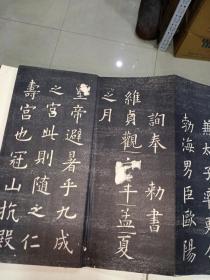 兼太子率更
勃海男臣歐陽
詢奉 勅書
維貞觀年孟夏
之月
皇帝避暑乎九成
之宮此則隨之仁
壽宮也冠山抗殿